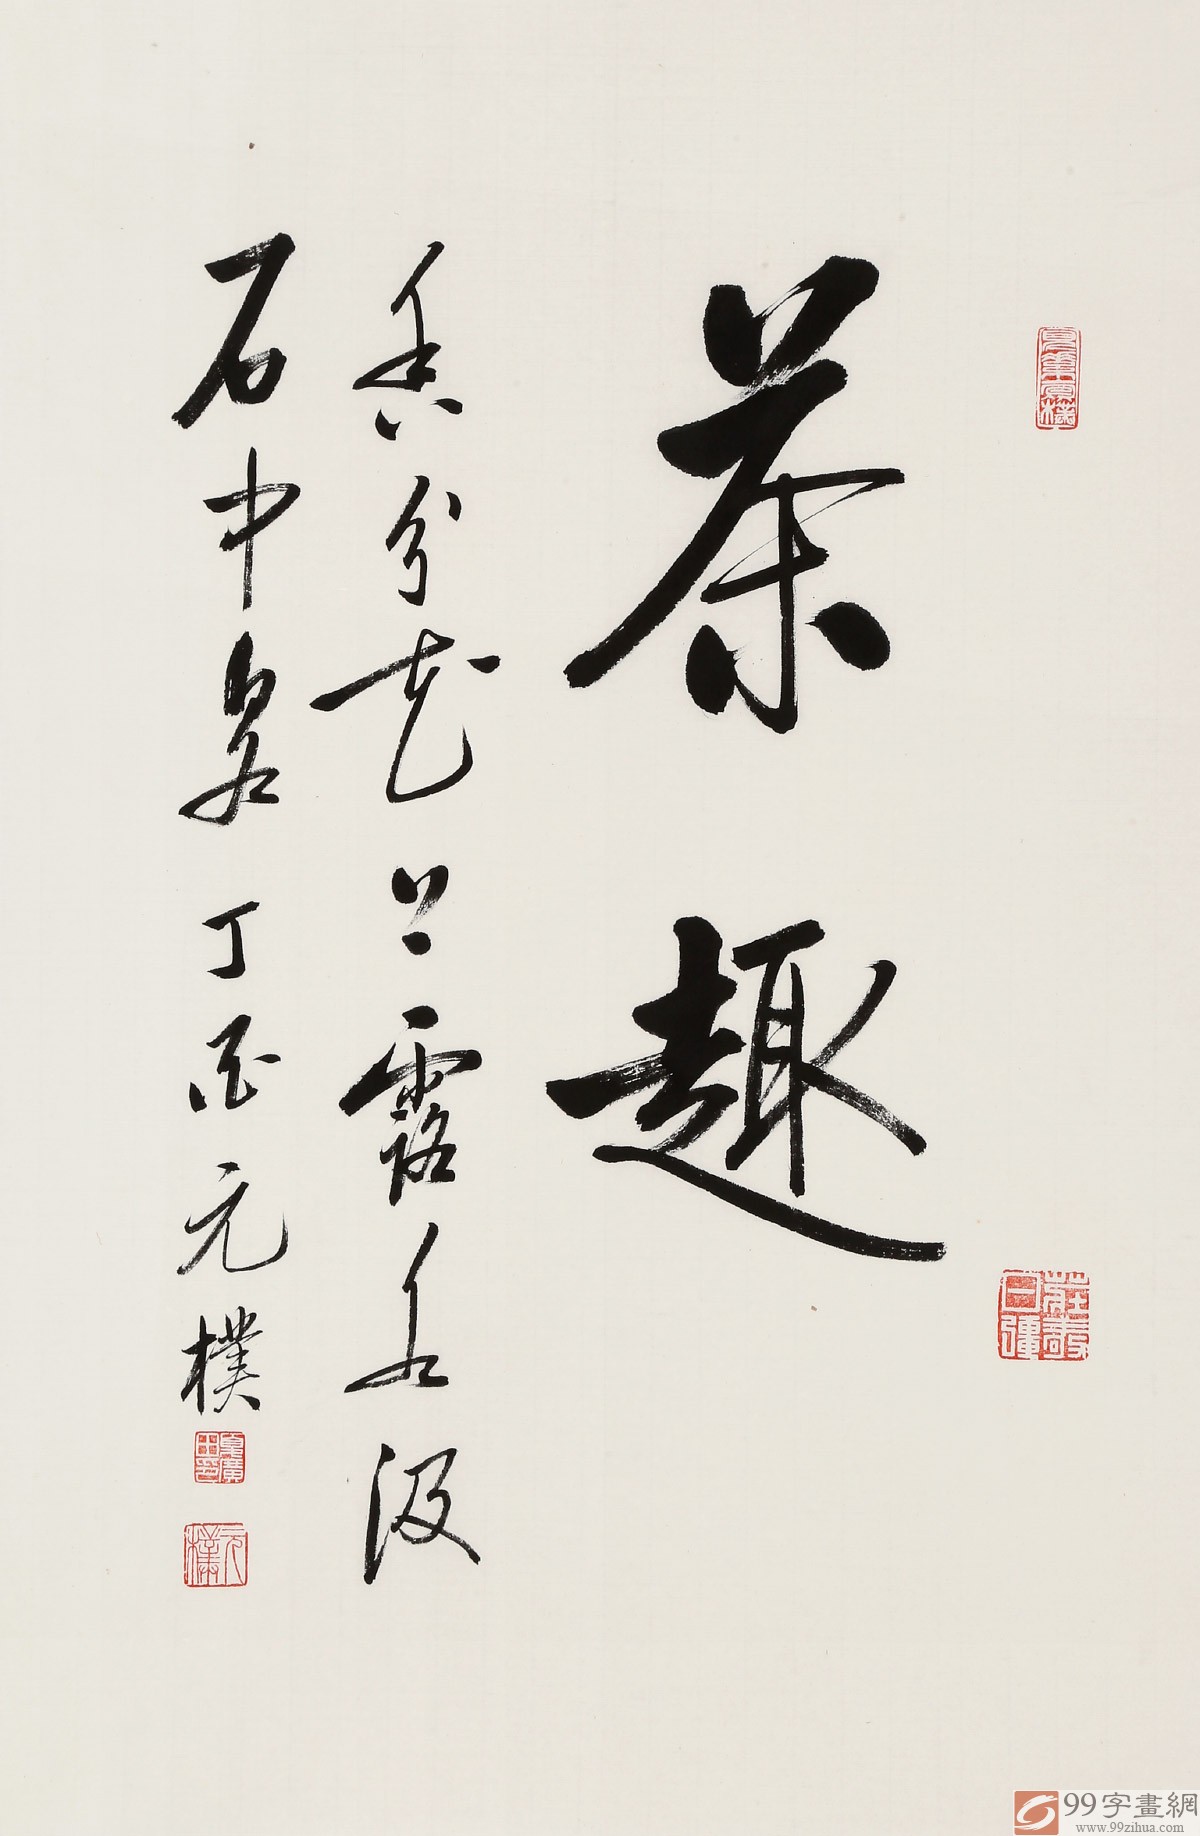 茶趣
香分花上露水汲
石中泉丁酉元樸
莊敬日強
元樸
99字畫網
www.99zihua.com